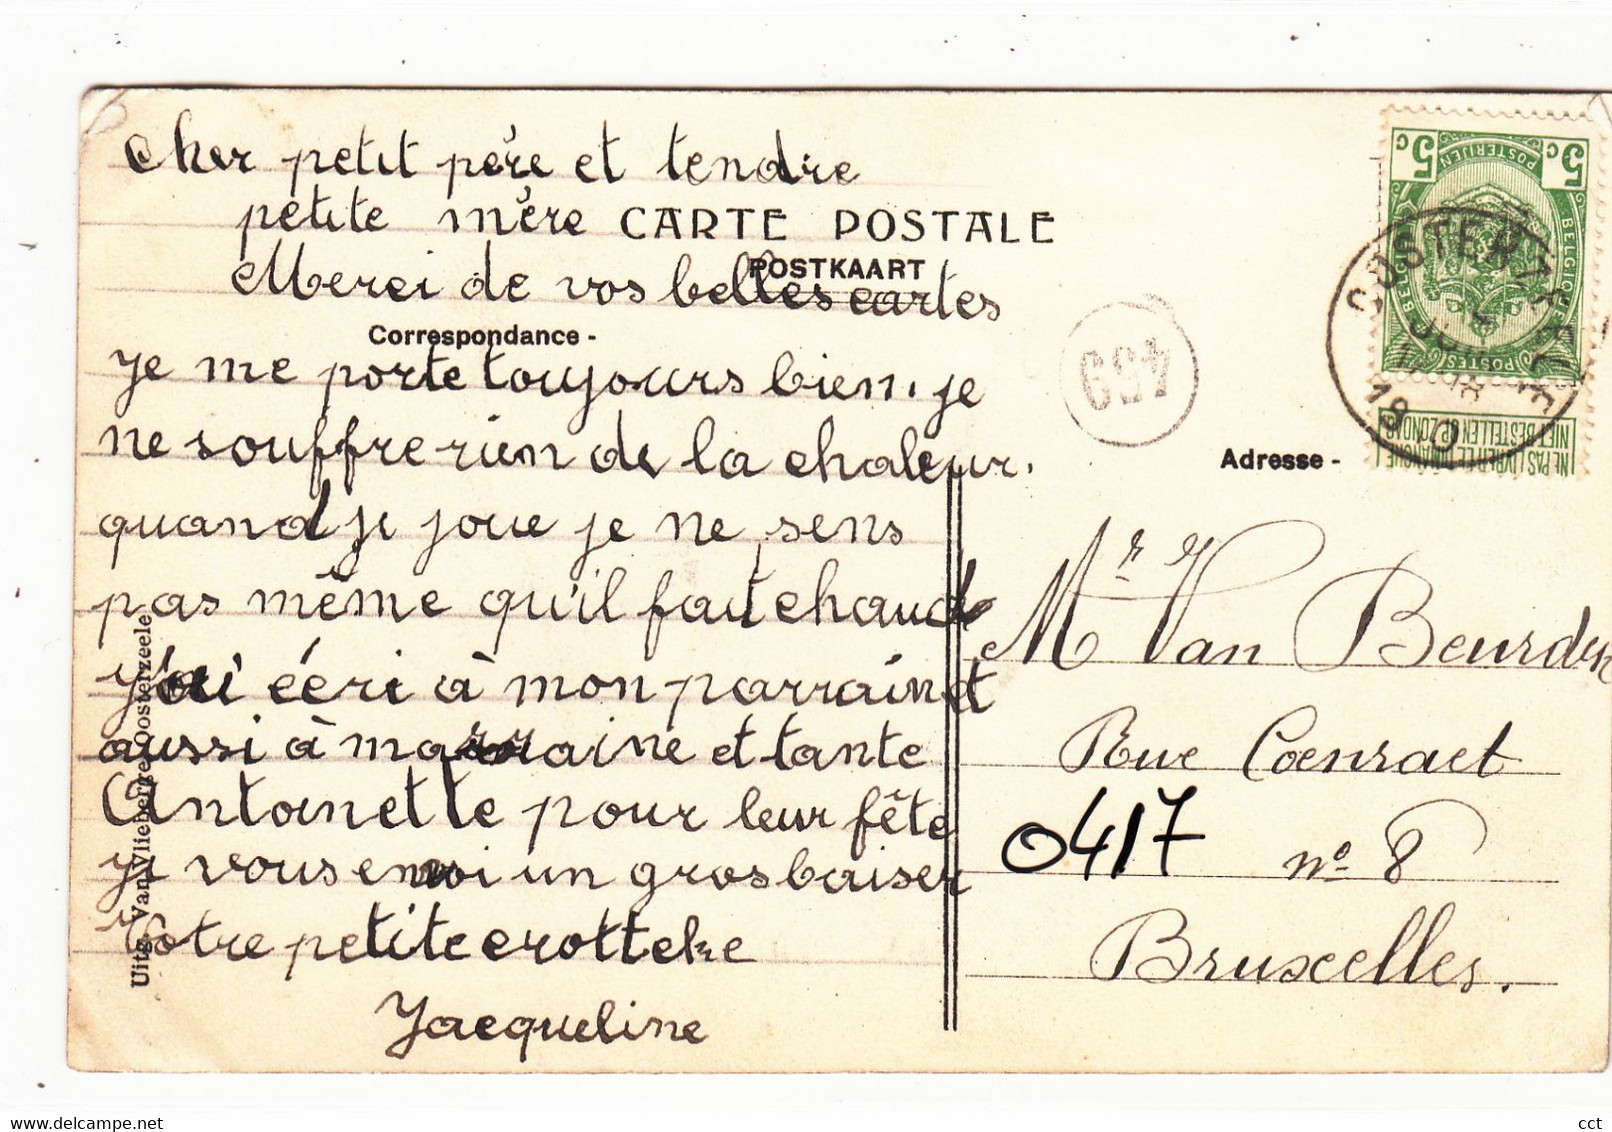 cher petit père et tendre
petite mère
CARTE POSTALE
POSTKAART
Merci de vos belles cartes
Correspondance -
je me porte toujours bien. je
ne souffre rien de la chaleur.
quand je joue je ne sens
pas même qu'il fait chaud
j'ai écri à mon parrain et
aussi à marraine et tante
Antoinette pour leur fête
je vous envoi un gros baiser
Votre petite crotteke
Jacqueline
Uitg. Van Vlieberge, Oosterzeele
5c 5c
POSTERIJEN
BELGIQUE
POSTES
OOSTERZEELE
NIET BESTELLEN OP ZONDAG
NE PAS LIVRER LE DIMANCHE
Adresse -
Mr Van Beurden
Rue Coenraet
0417
no 8
Bruxelles.
cct